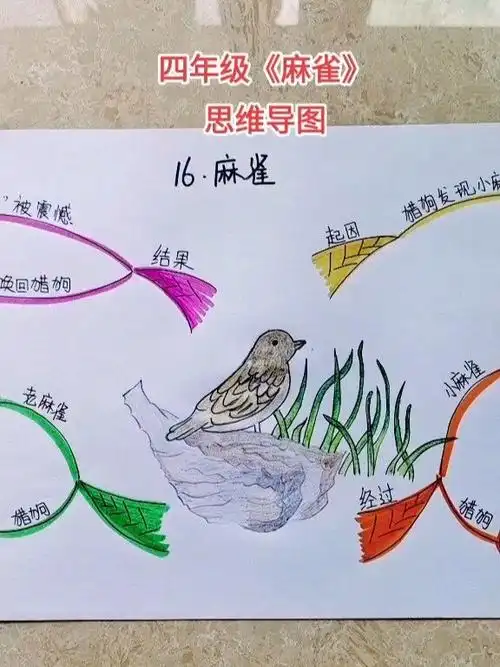 四年级《麻雀》
思维导图
16.麻雀
”被震撼
唤回猎狗
结果
起因
猎狗发现小麻
老麻雀
猎狗
小麻雀
经过
猎狗